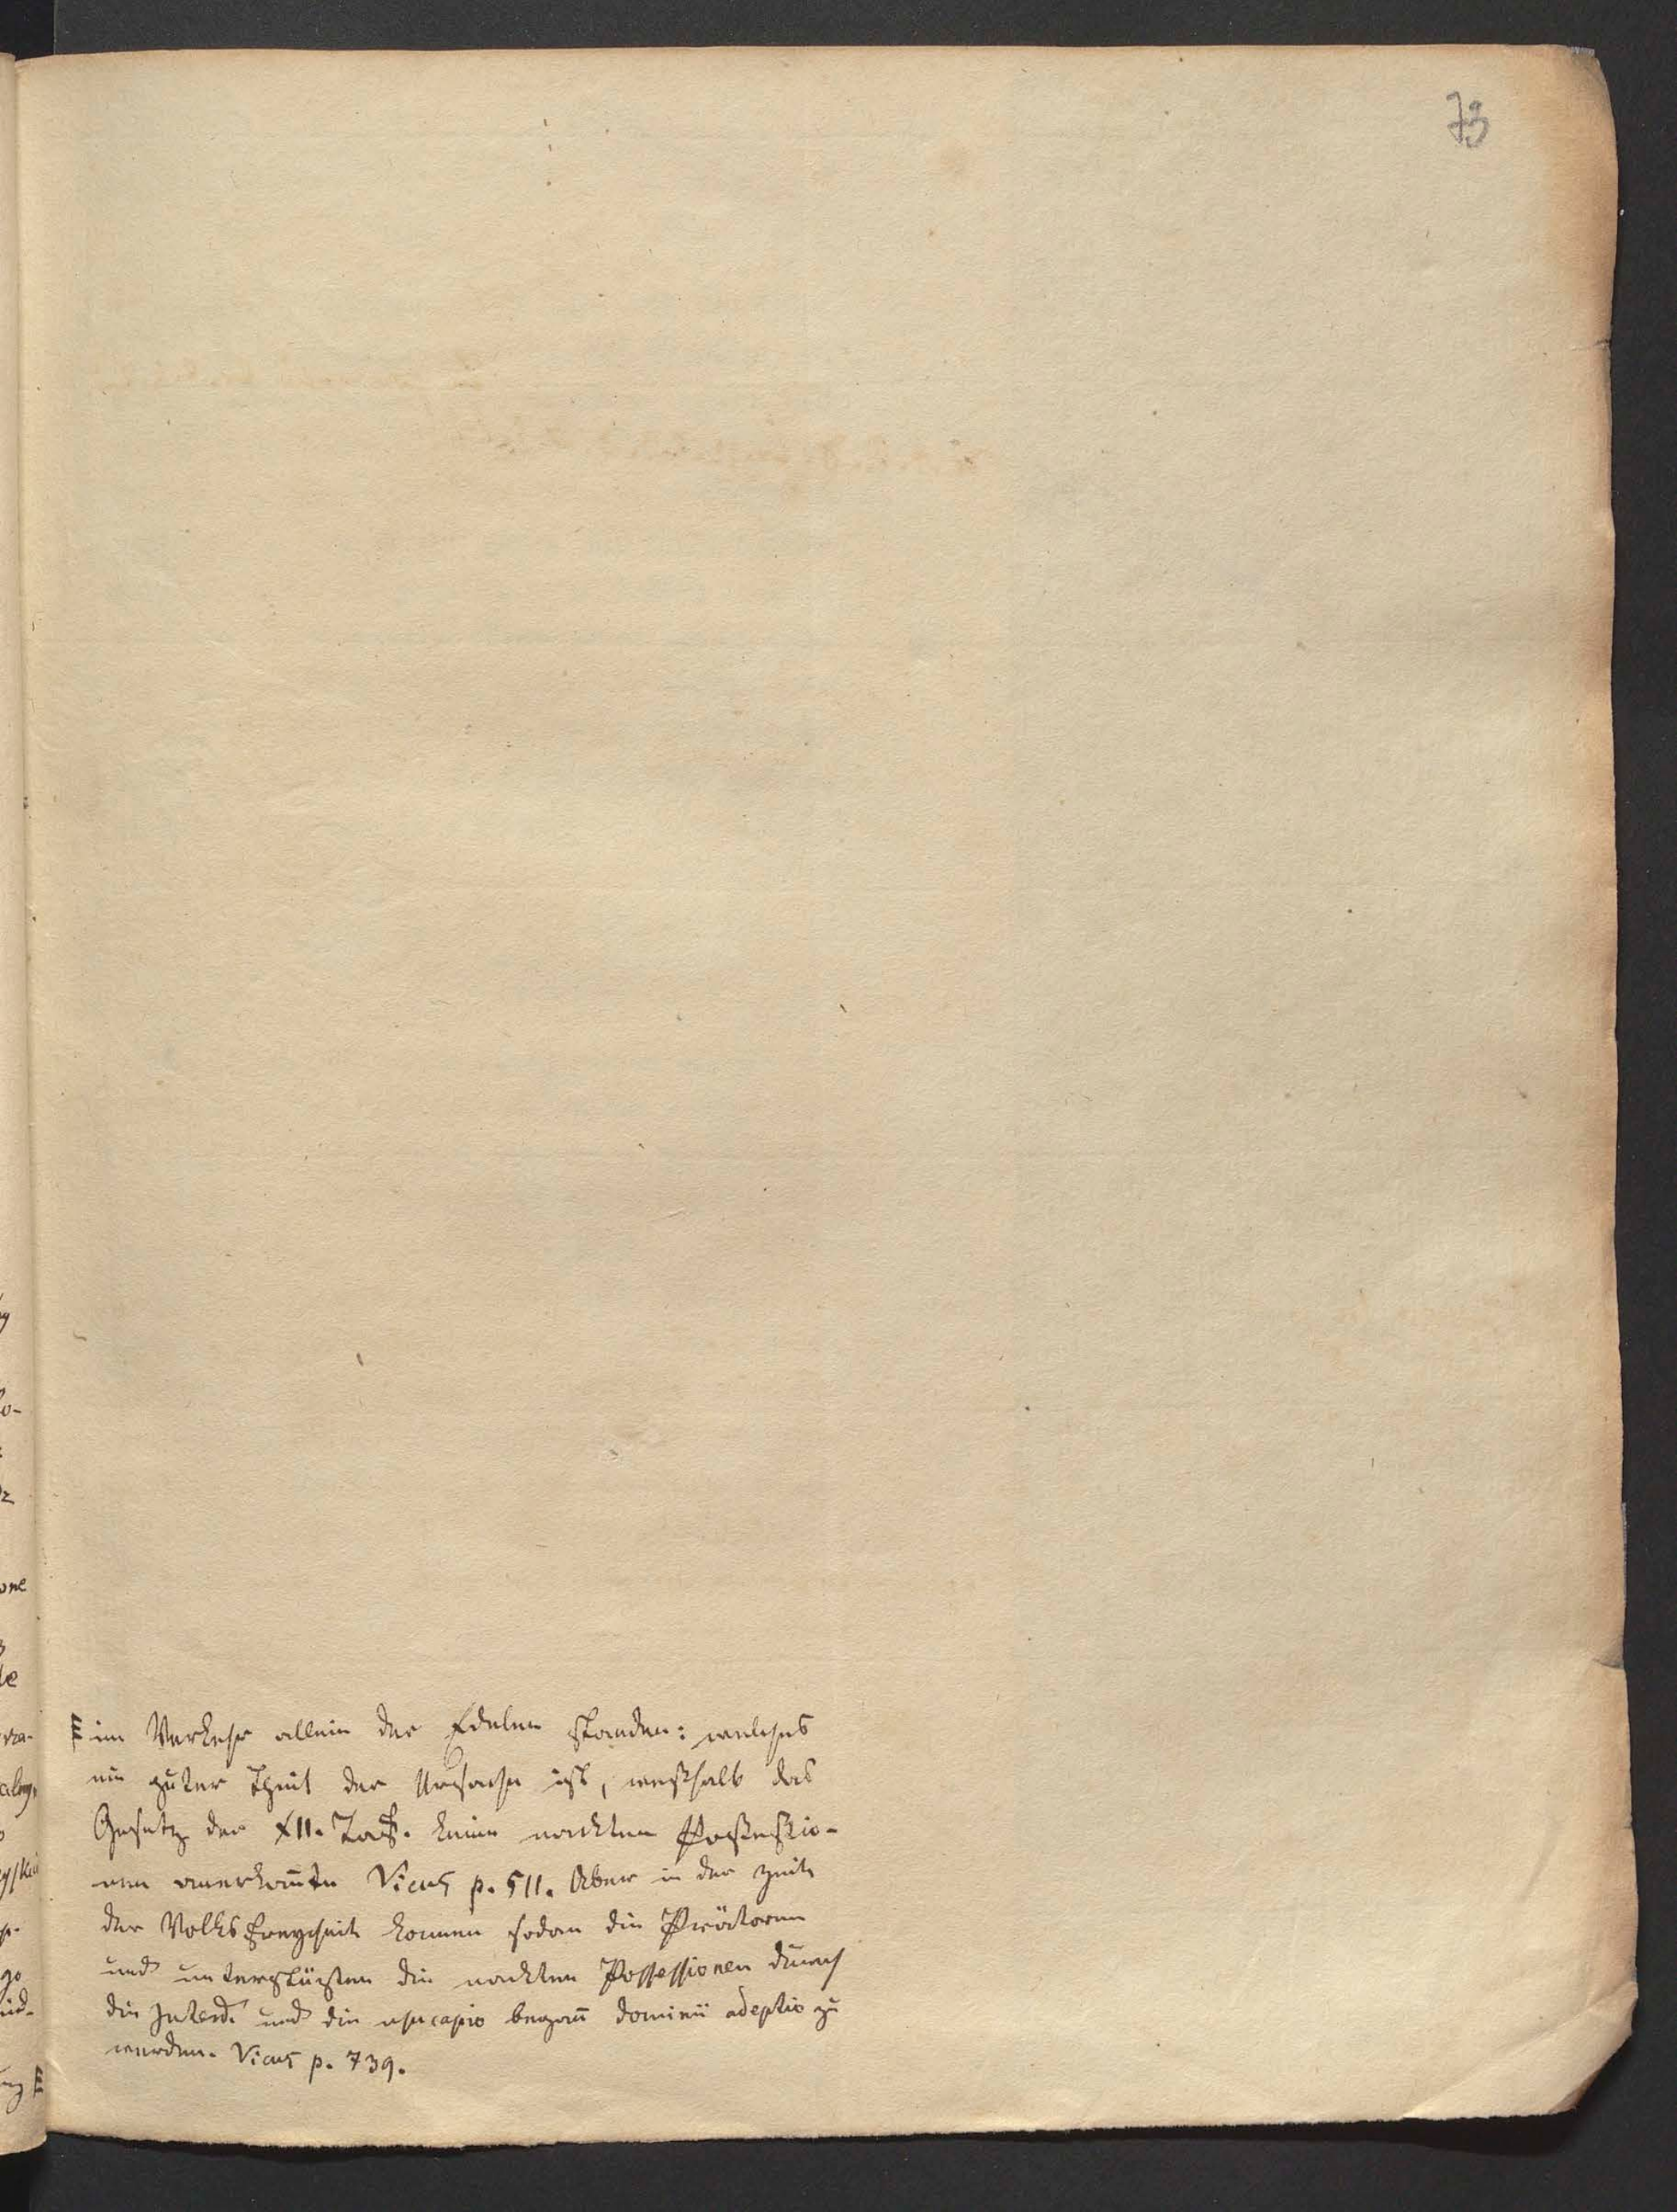 73
im Verkehr allein der Edelen standen: welches
ein guter Theil der Ursache ist, weßhalb das
Gesetz der XII. Taf. keine nackten Poßeßio-
nen anerkannte Vicus p. 511. Aber in der Zeit
der Volksfreyheit kommen sodan die Prätoren
und unterstüzten die nackten Possessionen durch
die Interd. und die usucapio began̄ dominii adeptio zu
werden. Vicus p. 739.